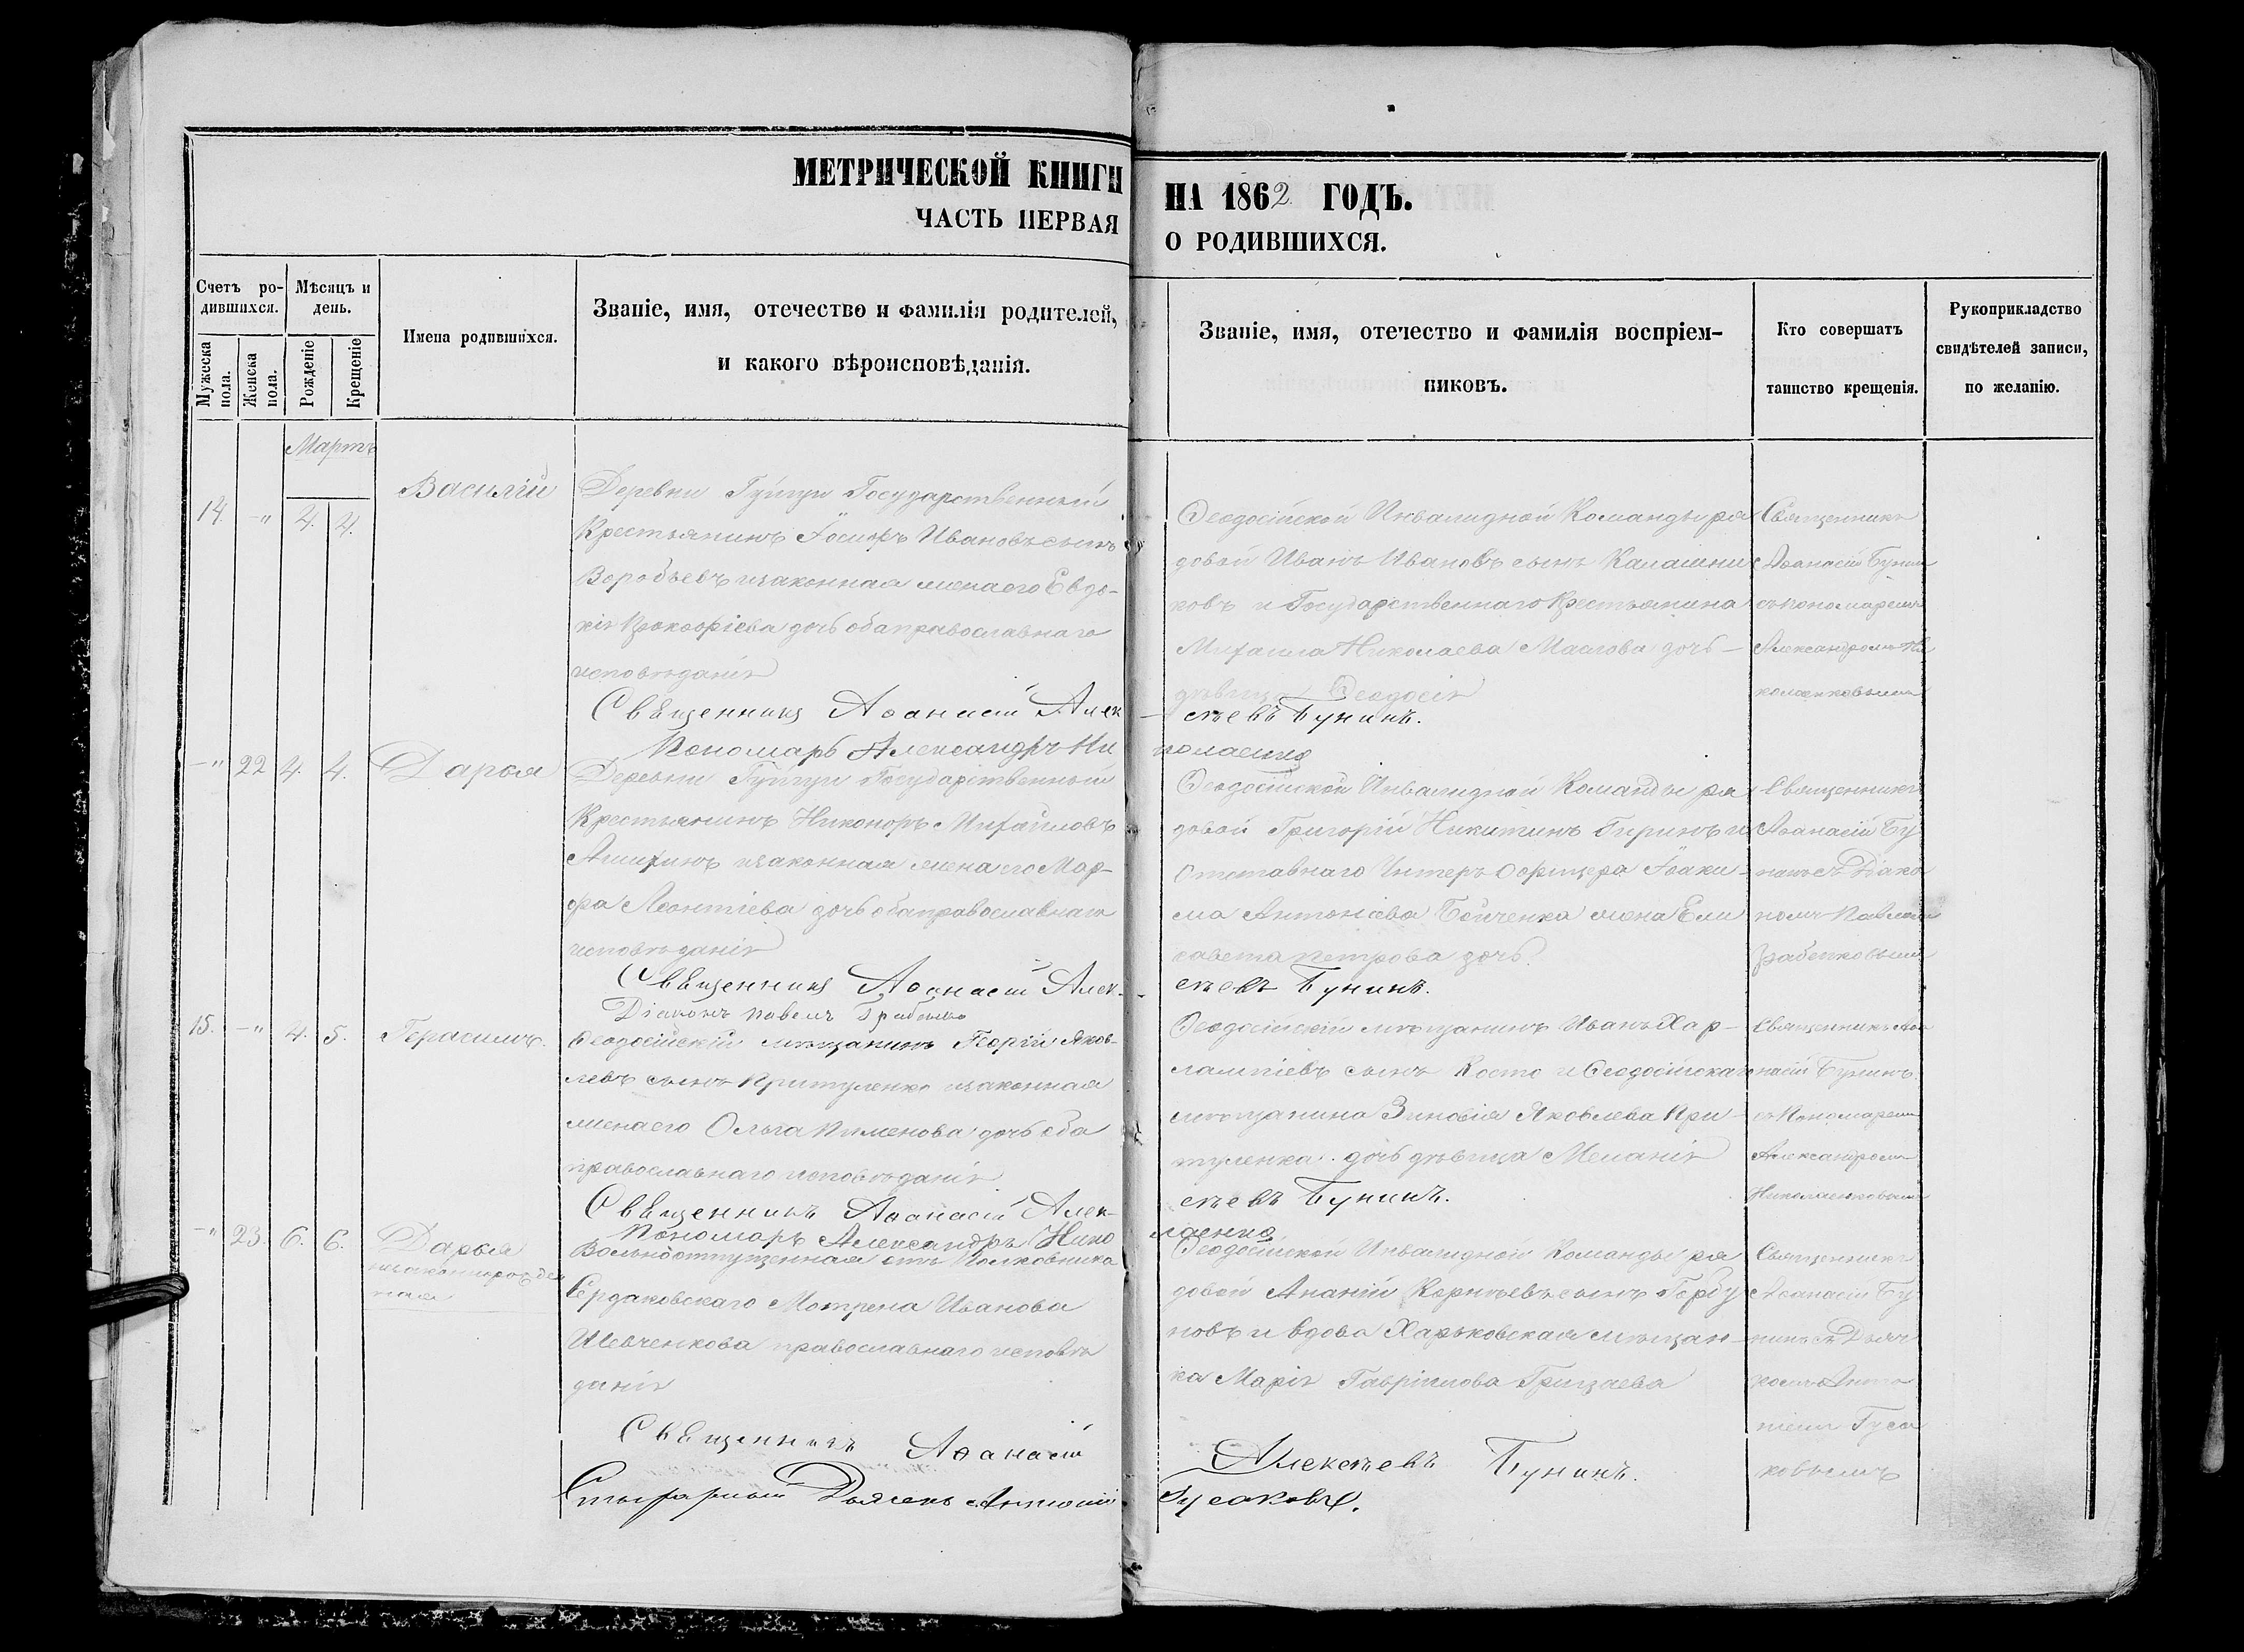 МЕТРИЧЕСКОЙ КНИГИ
ЧАСТЬ ПЕРВАЯ
НА 1862 ГОДЪ.
О РОДИВШИХСЯ.
Счетъ ро-
дившихся.
Мужеска
пола.
Женска
пола.
Мѣсяцъ и
день.
Рожденіе
Крещеніе
Имена родившихся.
Званіе, имя, отечество и фамилія родителей,
и какого вѣроисповѣданія.
Званіе, имя, отечество и фамилія воспріем-
никовъ.
Кто совершатъ
таинство крещенія.
Рукоприкладство
свидѣтелей записи,
по желанію.
Мартъ
14. -" 4. 4. Василій
Деревни Государственный
Крестьянинъ Іосифъ Ивановъ сынъ
Воробьевъ изаконная жена его Евдо-
кія Прокофіева дочь оба православнаго
исповѣданія
Ѳеодосійской Инвалидной Команды ря
довой Иванъ Ивановъ сынъ Калашни
ковъ и Государственнаго Крестьянина
Михаила Николаева Маслова дочь
дѣвица Ѳеодосія
Священникъ
Аѳанасій Бунин
съ пономаремъ
Александромъ Ни
колаенковымъ
Священникъ Аѳанасій Алек-
сѣевъ Бунинъ.
Пономарь Александръ Ни
колаенко
-" 22 4. 4. Дарья
Деревни Государственный
Крестьянинъ Никоноръ Михайловъ
изаконная жена его Мар-
фа Леонтіева дочь оба православнаго
исповѣданія
Ѳеодосійской Инвалидной Команды ря
довой Григорій Никитинъ и
Отставнаго Унтеръ Офицера Іоаки-
ма Антоніева жена Ели
савета Петрова дочь.
Священникъ
Аѳанасій Бу
нинъ съ Діако
номъ Павломъ
Грабенковымъ
Священникъ Аѳанасій Алек-
сѣевъ Бунинъ.
Діаконъ Павелъ Грабенко
15. -" 4. 5. Герасимъ.
Ѳеодосійскій мѣщанинъ Георгій Яков-
левъ сынъ Притуленко изаконная
жена его Ольга Пименова дочь оба
православнаго исповѣданія
Ѳеодосійскій мѣщанинъ Иванъ Хар-
лампіевъ сынъ Косто и Ѳеодосійскаго
мѣщанина Зиновія Яковлева При-
туленка дочь дѣвица Меланія
Священникъ Аѳа
насій Бунинъ
съ Пономаремъ
Александромъ
Николаенковымъ
Священникъ Аѳанасій Алек-
сѣевъ Бунинъ.
Пономарь Александръ Нико
лаенко
-" 23. 6. 6. Дарья
незаконнорожден
ная
Вольноотпущенная отъ Полковника
Сердаковскаго Мотрена Иванова
Шевченкова православнаго исповѣ
данія
Ѳеодосійской Инвалидной Команды ря
довой Ананій Корнѣевъ сынъ Горбу
новъ и вдова Харьковская мѣщан-
ка Марія Гавріилова Грицаева
Священникъ
Аѳанасій Бу
нинъ съ Дьяч
комъ Анто
ніемъ Гуса
ковымъ
Священникъ Аѳанасій
Алексѣевъ Бунинъ.
Дьячекъ Антоній
Гусаковъ.